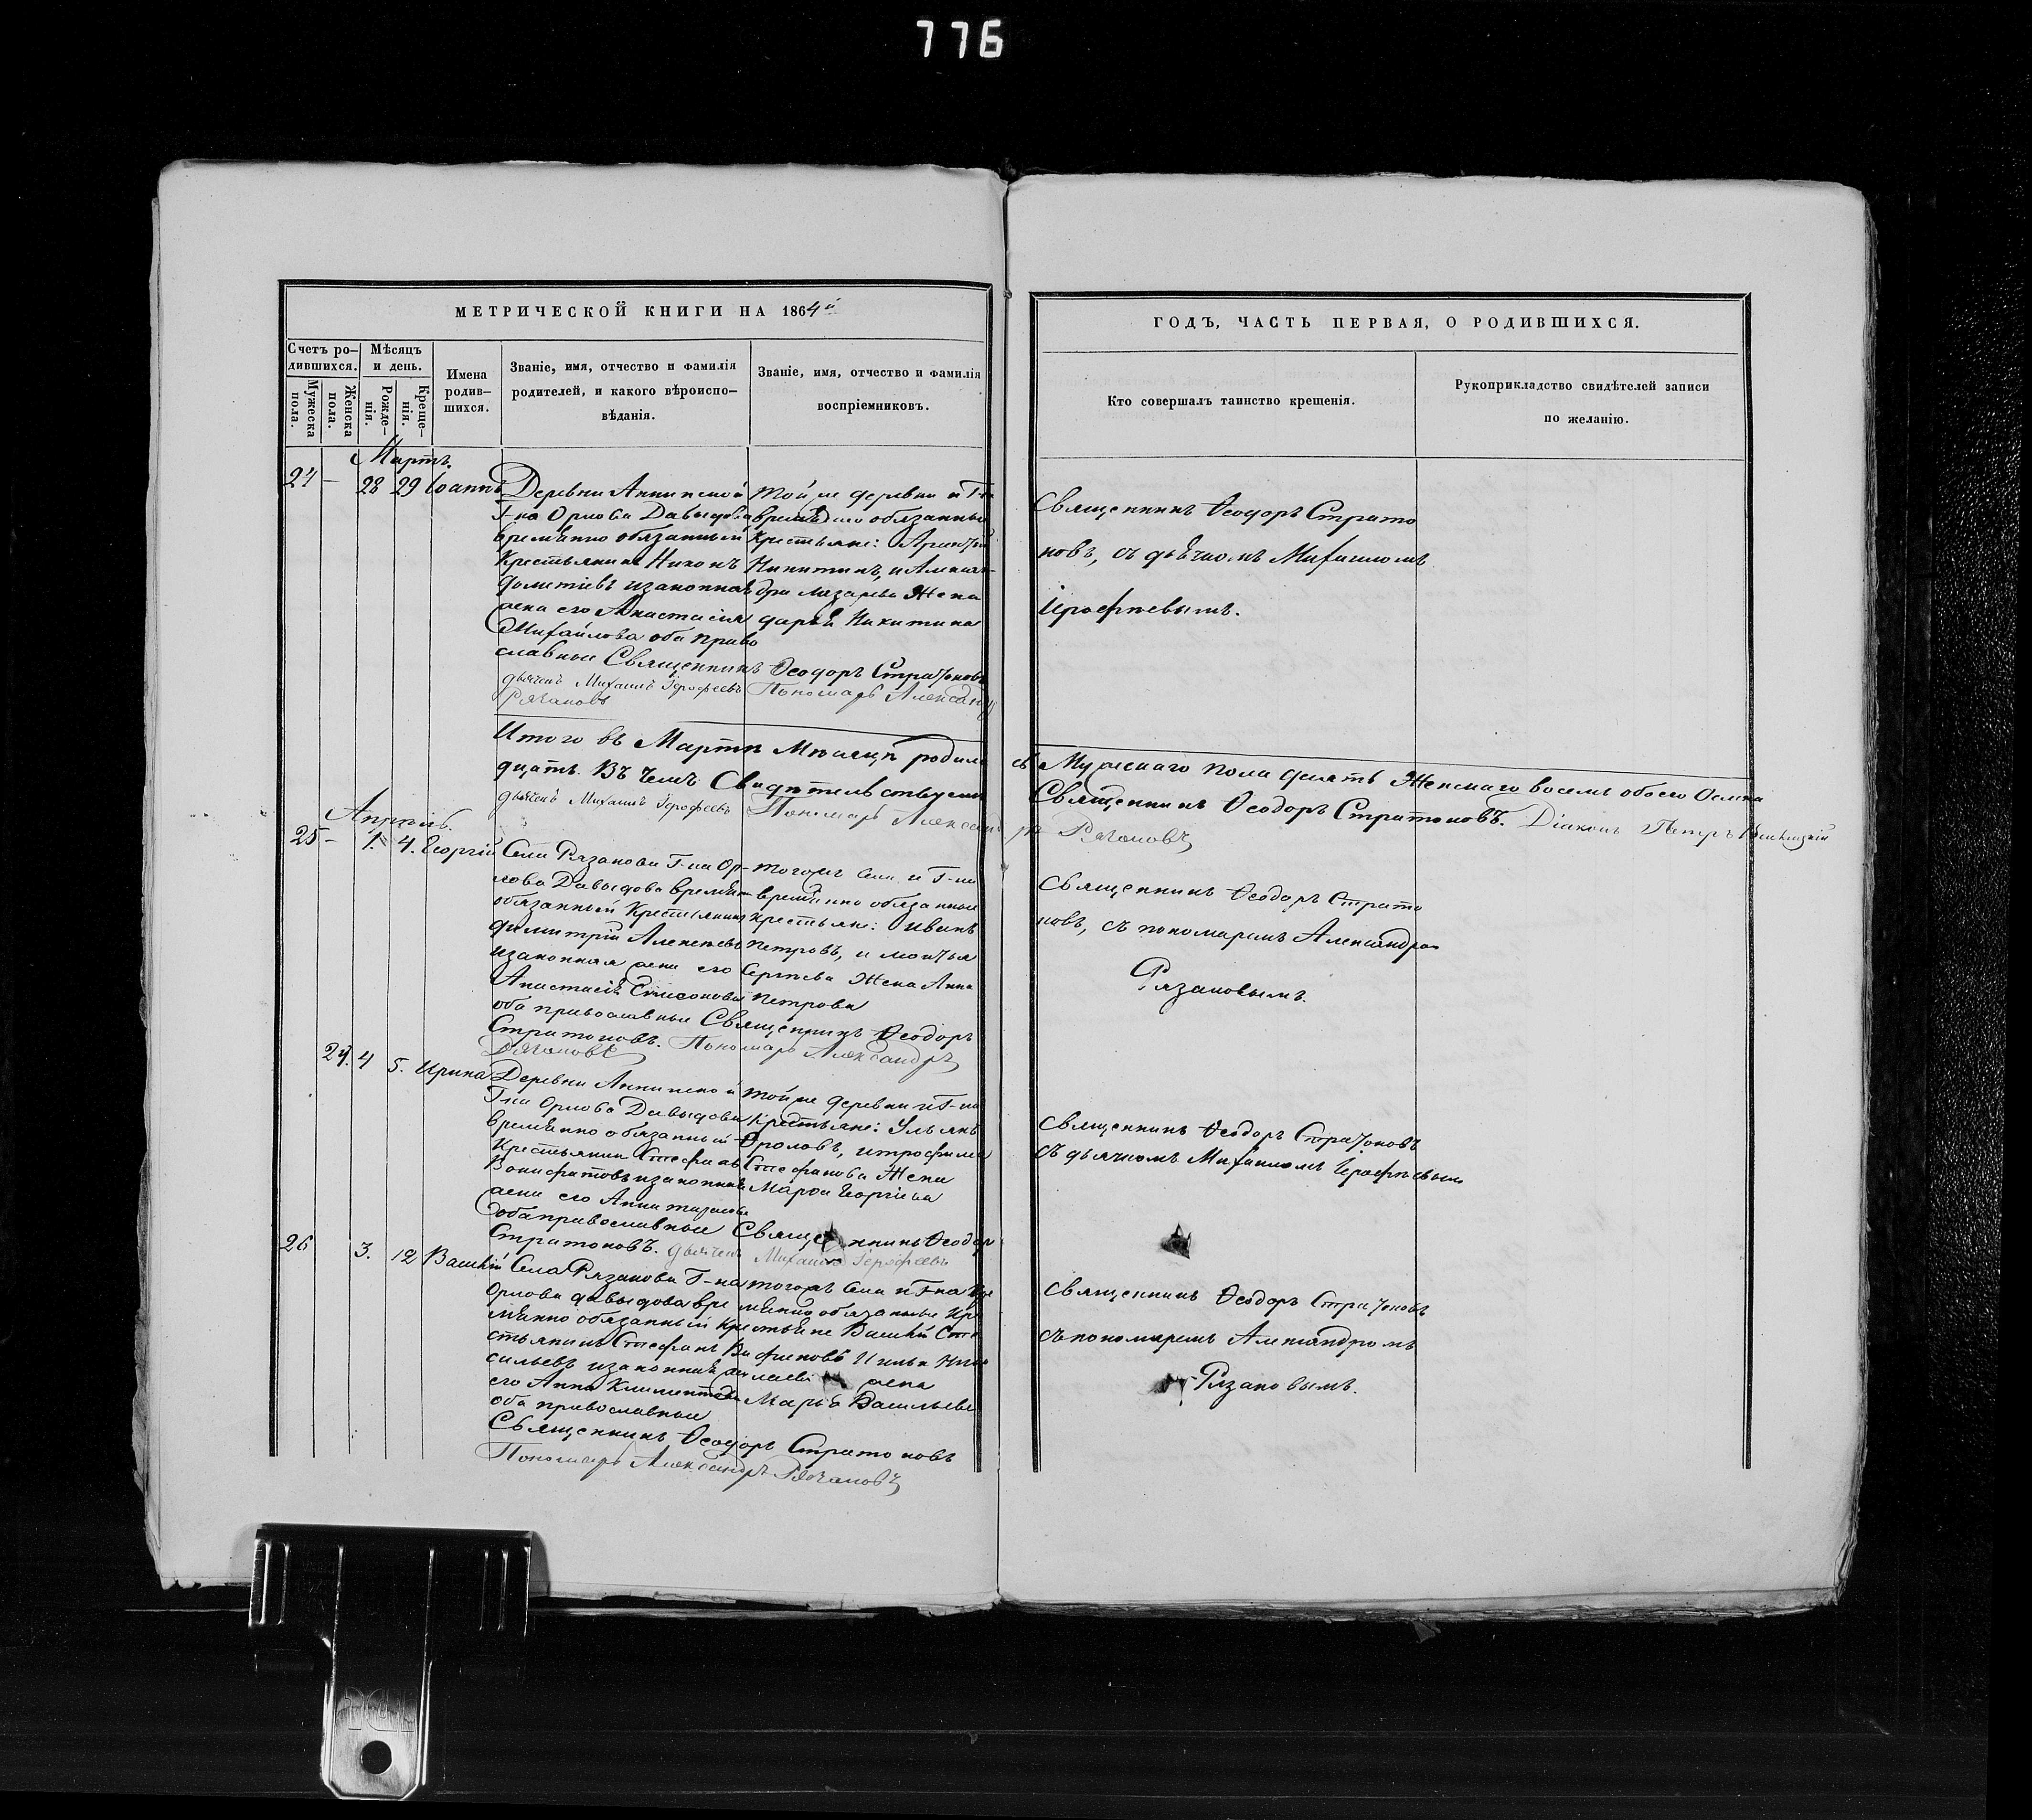 776
МЕТРИЧЕСКОЙ КНИГИ НА 1864й
ГОДЪ, ЧАСТЬ ПЕРВАЯ, О РОДИВШИХСЯ.
Счетъ ро-
дившихся.
Мужеска
пола.
Женска
пола.
Мѣсяцъ
и день.
Рожде-
нія.
Креще-
нія.
Имена
родив-
шихся.
Званіе, имя, отчество и фамилія
родителей, и какого вѣроиспо-
вѣданія.
Званіе, имя, отчество и фамилія
воспріемниковъ.
Кто совершалъ таинство крещенія.
Рукоприкладство свидѣтелей записи
по желанію.
Мартъ.
24 - 28 29 Іоаннъ
Деревни
Г-на Орлова Давыдова
временно обязанный
Крестьянинъ Никонъ
изаконная
жена его Анастасія
Михайлова оба право
славные Священникъ Ѳеодоръ Стратоновъ
дьячекъ Михаилъ Іерофеевъ Пономарь Александръ
Рязановъ
той же деревни и Г-на
временно обязанные
крестьяне:
Никитинъ, и Алексан-
дра Лазарева Жена
Дарья Никитина
Священникъ Ѳеодоръ Страто
новъ, съ дьячкомъ Михаиломъ
Іерофѣевымъ.
Итого въ Мартѣ Мѣсяцѣ родило
сь Мужескаго пола девять Женскаго восемь обоего
дцать. Въ чемъ Свидѣтельствуемъ
Священникъ Ѳеодоръ Стратоновъ. Діаконъ Петръ
дьячекъ Михаилъ Іерофеевъ Пономарь Александ
ръ Рязановъ
Апрѣль.
25 - 1. 4. Георгій
Села Рязанова Г-на Ор-
лова Давыдова временно
обязанный Крестьянинъ
Димитрій Алексѣевъ
изаконная жена его
Анастасія Симеонова
оба православные Священникъ Ѳеодоръ
Стратоновъ. Пономарь Александръ
Рязановъ
тогоже Села и Г-на
временно обязанные
крестьяне: Иванъ
Петровъ, и
Сергѣева Жена Анна
Петрова
Священникъ Ѳеодоръ Страто
новъ, съ пономаремъ Александромъ
Рязановымъ.
24. 4 5. Ирина
Деревни
Г-на Орлова Давыдова
временно обязанный
Крестьянинъ Стефанъ
Вонифатовъ изаконная
жена его Анна
оба православные Священникъ Ѳеодоръ
Стратоновъ. дьячекъ Михаилъ Іерофеевъ
той же деревни и Г-на
Крестьяне: Ульянъ
Фроловъ, и
Стефанова Жена
Марѳа Георгіева
Священникъ Ѳеодоръ Стратоновъ
съ дьячкомъ Михаиломъ Іерофѣевымъ
26 3. 12 Василій
Села Рязанова Г-на
Орлова Давыдова вре
мянно обязанный Кре
стьянинъ Стефанъ Ва
сильевъ изаконная жена
его Анна Климентова
оба православные
Священникъ Ѳеодоръ Стратоновъ
Пономарь Александръ Рязановъ
тогожъ Села и Г-на вре
мянно обязанные Кре
стьяне Василій Сте
фановъ
жена
Марья Васильева
Священникъ Ѳеодоръ Стратоновъ
съ пономаремъ Александромъ
Рязановымъ.